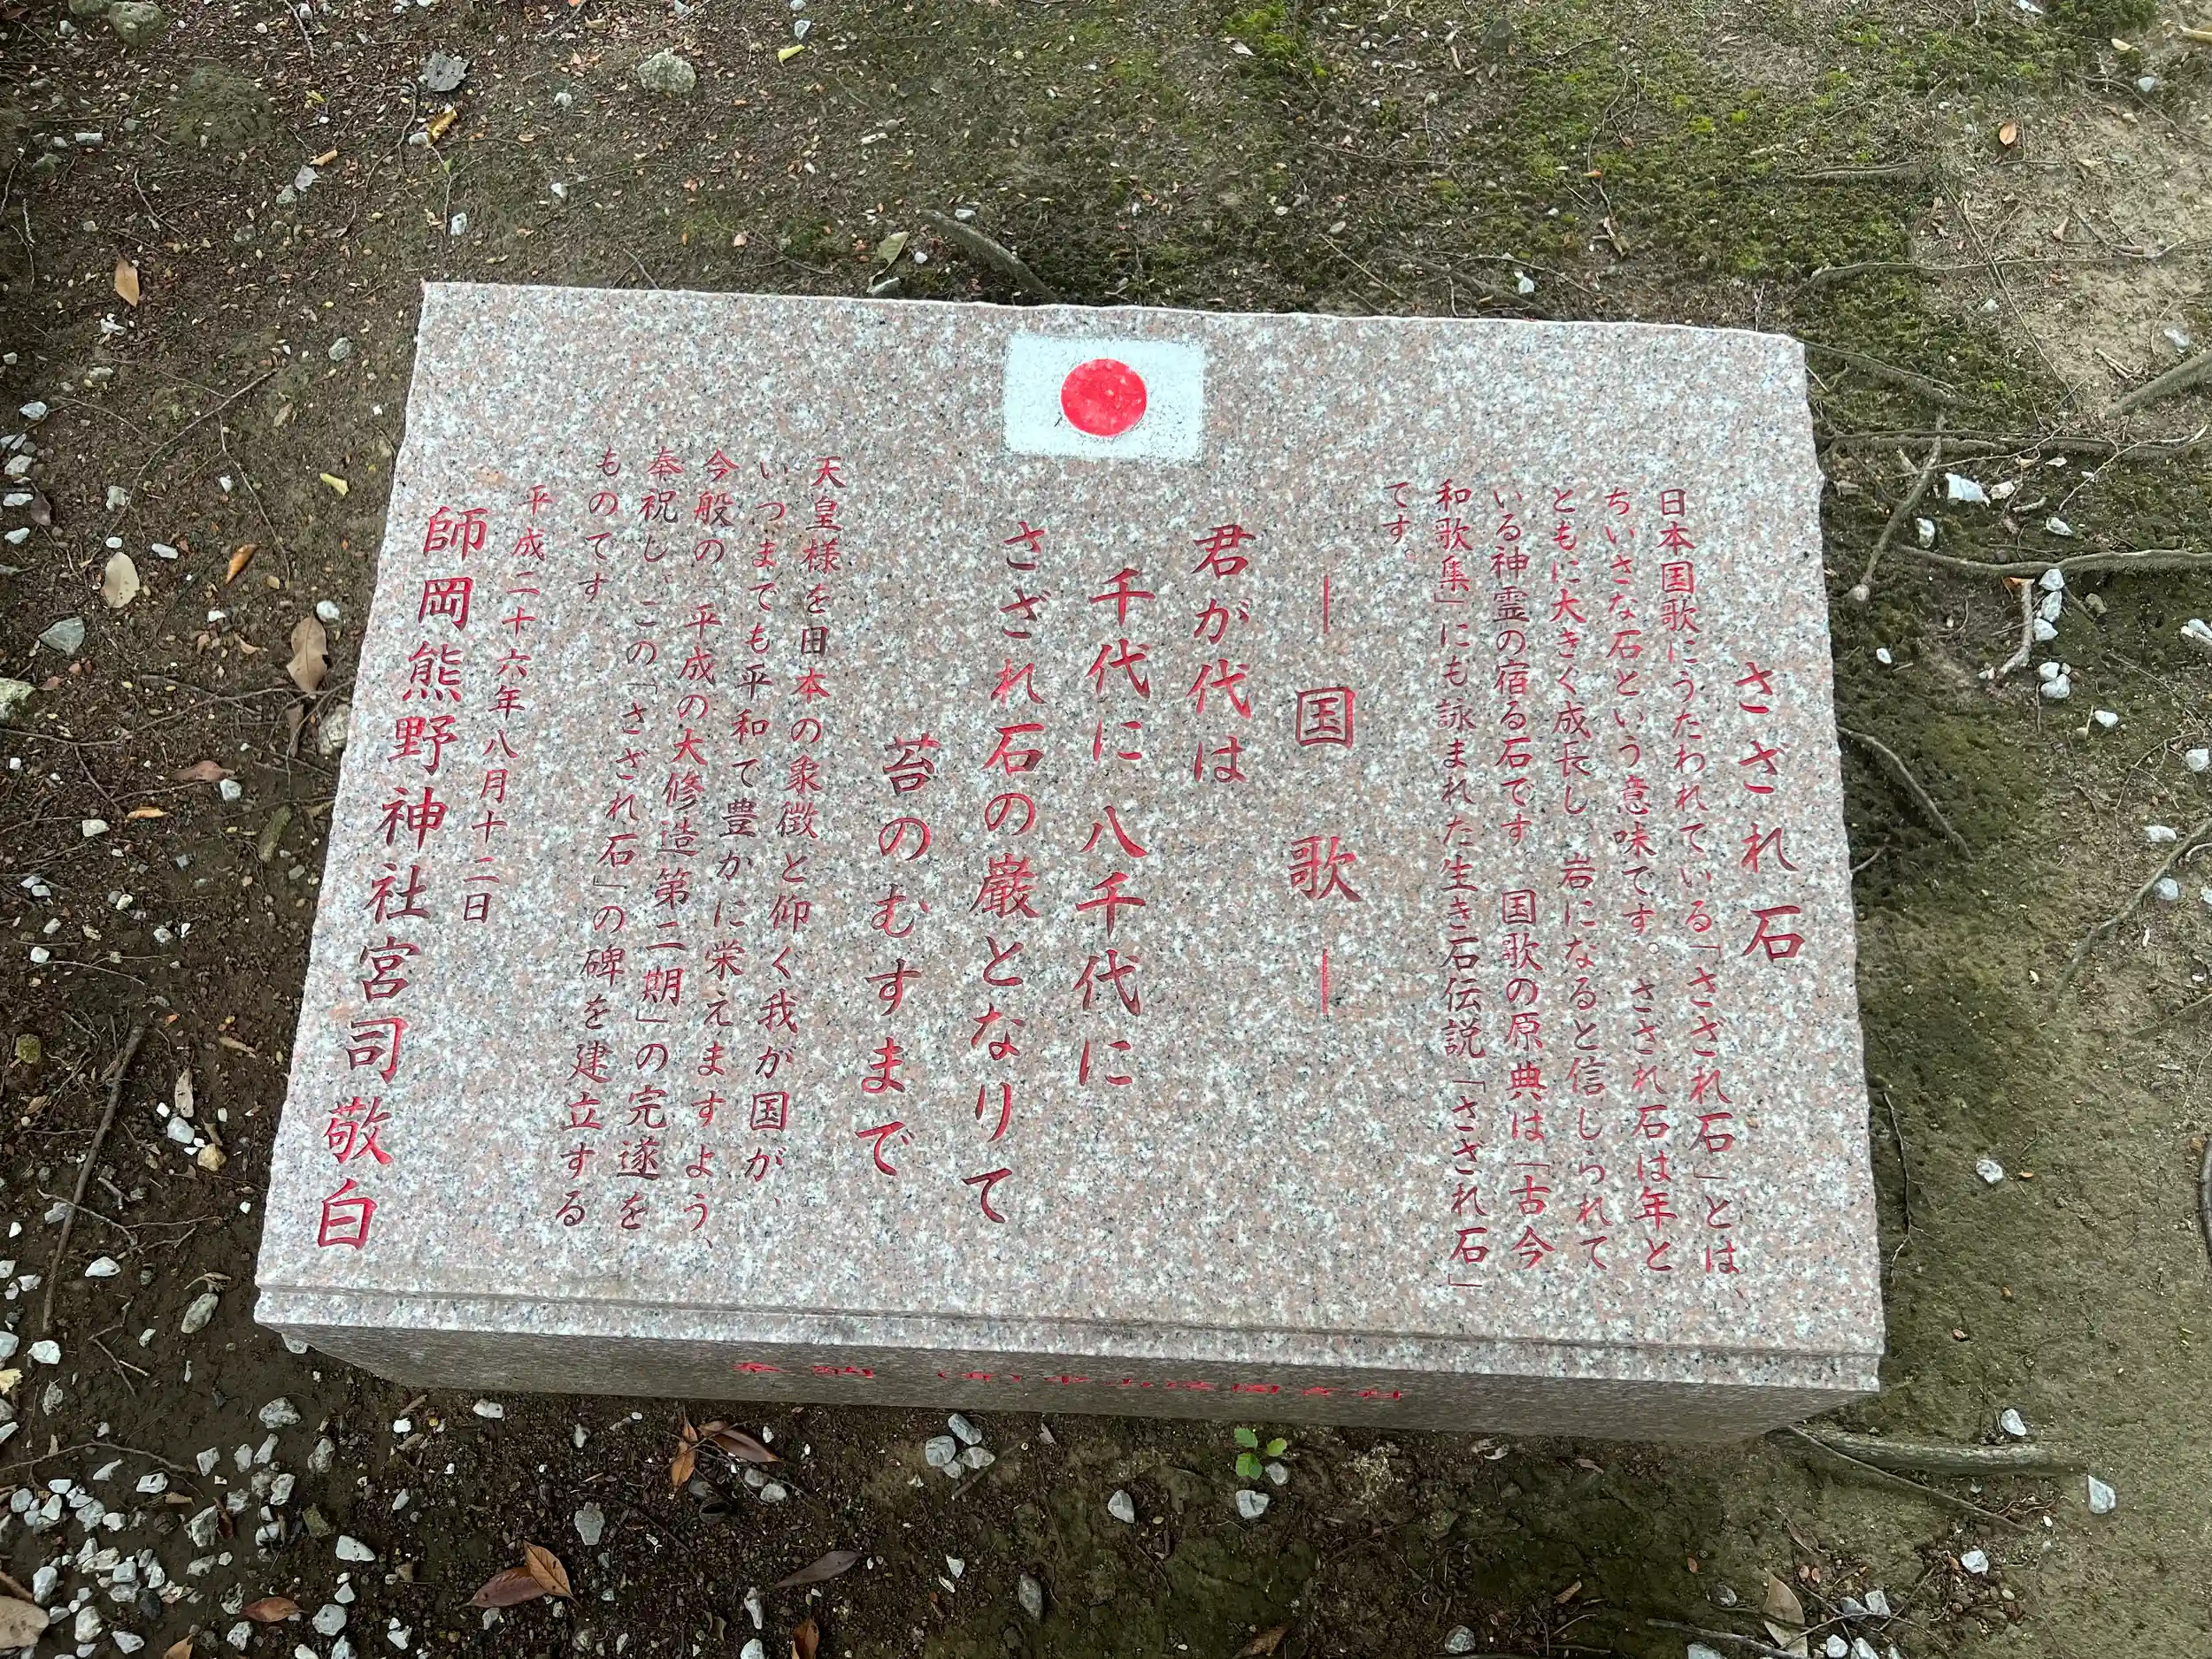 さざれ石
日本国歌にうたわれている「さざれ石」とは、
ちいさな石という意味です。さざれ石は年と
ともに大きく成長し、岩になると信じられて
いる神霊の宿る石です。国歌の原典は「古今
和歌集」にも詠まれた生き石伝説「さざれ石」
です。
―国歌―
君が代は
千代に八千代に
さざれ石の巌となりて
苔のむすまで
天皇様を日本の象徴と仰ぐ我が国が、
いつまでも平和で豊かに栄えますよう、
今般の「平成の大修造第二期」の完遂を
奉祝し、この「さざれ石」の碑を建立する
ものです
平成二十六年八月十二日
師岡熊野神社宮司敬白